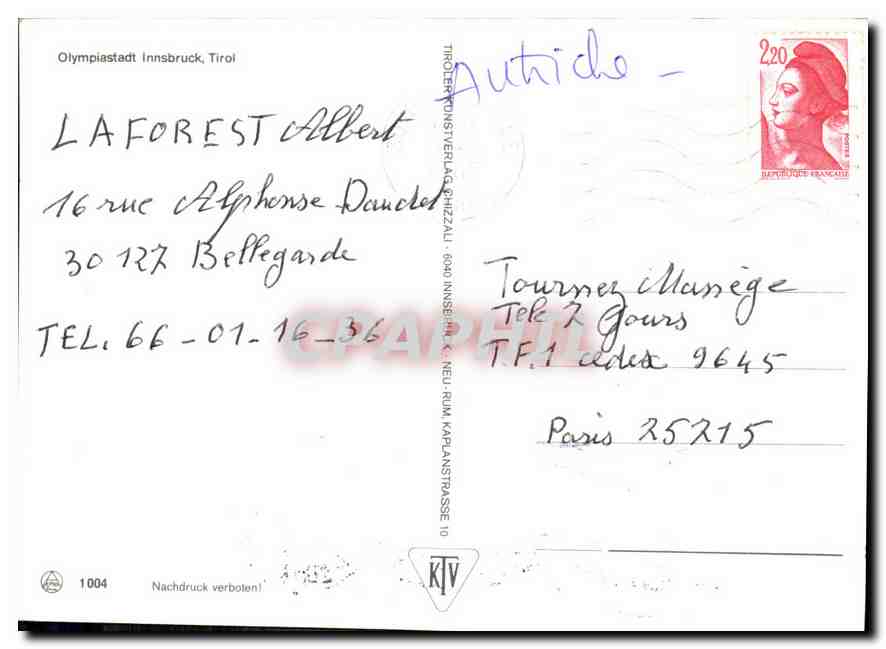 Olympiastadt Innsbruck, Tirol
Autriche -
2,20
POSTES
REPUBLIQUE FRANÇAISE
LAFOREST Albert
16 rue Alphonse Daudet
30 127 Bellegarde
TEL. 66-01-16-36
TIROLER KUNSTVERLAG CHIZZALI · 6040 INNSBRUCK - NEU-RUM, KAPLANSTRASSE 10
Tournez Manège
Tele 7 Jours
T.F.1 cedex 9645
Paris 25215
CPAPHIL
KTV
1004
Nachdruck verboten!